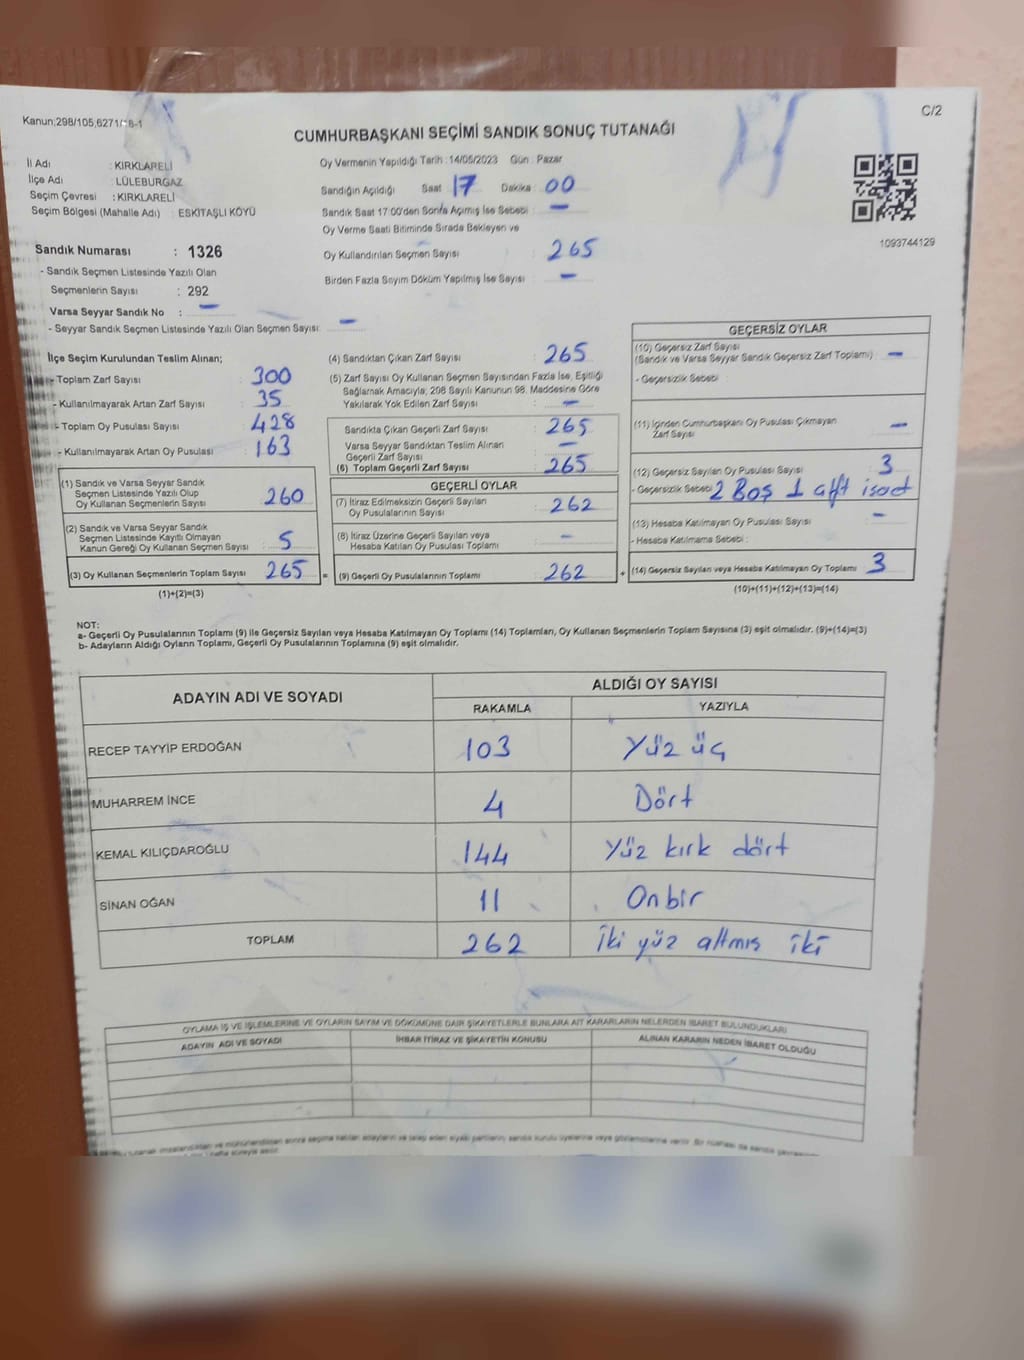 Kanun:298/105,6271/18-1
C/2
CUMHURBAŞKANI SEÇİMİ SANDIK SONUÇ TUTANAĞI
İl Adı : KIRKLARELİ
İlçe Adı : LÜLEBURGAZ
Seçim Çevresi : KIRKLARELİ
Seçim Bölgesi (Mahalle Adı) : ESKİTAŞLI KÖYÜ
Oy Vermenin Yapıldığı Tarih : 14/05/2023 Gün : Pazar
Sandığın Açıldığı Saat 17 Dakika : 00
Sandık Saat 17:00'den Sonra Açılmış İse Sebebi : —
Oy Verme Saati Bitiminde Sırada Bekleyen ve
Oy Kullandırılan Seçmen Sayısı : 265
Birden Fazla Sayım Döküm Yapılmış İse Sayısı : —
1093744129
Sandık Numarası : 1326
- Sandık Seçmen Listesinde Yazılı Olan
Seçmenlerin Sayısı : 292
Varsa Seyyar Sandık No : —
- Seyyar Sandık Seçmen Listesinde Yazılı Olan Seçmen Sayısı: —
İlçe Seçim Kurulundan Teslim Alınan;
- Toplam Zarf Sayısı : 300
- Kullanılmayarak Artan Zarf Sayısı : 35
- Toplam Oy Pusulası Sayısı : 428
- Kullanılmayarak Artan Oy Pusulası : 163
(1) Sandık ve Varsa Seyyar Sandık
Seçmen Listesinde Yazılı Olup
Oy Kullanan Seçmenlerin Sayısı : 260
(2) Sandık ve Varsa Seyyar Sandık
Seçmen Listesinde Kayıtlı Olmayan
Kanun Gereği Oy Kullanan Seçmen Sayısı : 5
(3) Oy Kullanan Seçmenlerin Toplam Sayısı : 265 =
(1)+(2)=(3)
(4) Sandıktan Çıkan Zarf Sayısı : 265
(5) Zarf Sayısı Oy Kullanan Seçmen Sayısından Fazla İse, Eşitliği
Sağlamak Amacıyla; 298 Sayılı Kanunun 98. Maddesine Göre
Yakılarak Yok Edilen Zarf Sayısı : —
Sandıkta Çıkan Geçerli Zarf Sayısı : 265
Varsa Seyyar Sandıktan Teslim Alınan
Geçerli Zarf Sayısı : —
(6) Toplam Geçerli Zarf Sayısı : 265
GEÇERLİ OYLAR
(7) İtiraz Edilmeksizin Geçerli Sayılan
Oy Pusulalarının Sayısı : 262
(8) İtiraz Üzerine Geçerli Sayılan veya
Hesaba Katılan Oy Pusulası Toplamı : —
(9) Geçerli Oy Pusulalarının Toplamı : 262 +
GEÇERSİZ OYLAR
(10) Geçersiz Zarf Sayısı
(Sandık ve Varsa Seyyar Sandık Geçersiz Zarf Toplamı) : —
- Geçersizlik Sebebi :
(11) İçinden Cumhurbaşkanı Oy Pusulası Çıkmayan
Zarf Sayısı : —
(12) Geçersiz Sayılan Oy Pusulası Sayısı : 3
- Geçersizlik Sebebi : 2 Boş 1
(13) Hesaba Katılmayan Oy Pusulası Sayısı : —
- Hesaba Katılmama Sebebi :
(14) Geçersiz Sayılan veya Hesaba Katılmayan Oy Toplamı : 3
(10)+(11)+(12)+(13)=(14)
NOT:
a- Geçerli Oy Pusulalarının Toplamı (9) ile Geçersiz Sayılan veya Hesaba Katılmayan Oy Toplamı (14) Toplamları, Oy Kullanan Seçmenlerin Toplam Sayısına (3) eşit olmalıdır. (9)+(14)=(3)
b- Adayların Aldığı Oyların Toplamı, Geçerli Oy Pusulalarının Toplamına (9) eşit olmalıdır.
ADAYIN ADI VE SOYADI ALDIĞI OY SAYISI
RAKAMLA YAZIYLA
RECEP TAYYİP ERDOĞAN 103 Yüz üç
MUHARREM İNCE 4 Dört
KEMAL KILIÇDAROĞLU 144 Yüz kırk dört
SİNAN OĞAN 11 Onbir
TOPLAM 262 İki yüz altmış iki
OYLAMA İŞ VE İŞLEMLERİNE VE OYLARIN SAYIM VE DÖKÜMÜNE DAİR ŞİKAYETLERLE BUNLARA AİT KARARLARIN NELERDEN İBARET BULUNDUKLARI
ADAYIN ADI VE SOYADI İHBAR İTİRAZ VE ŞİKAYETİN KONUSU ALINAN KARARIN NEDEN İBARET OLDUĞU